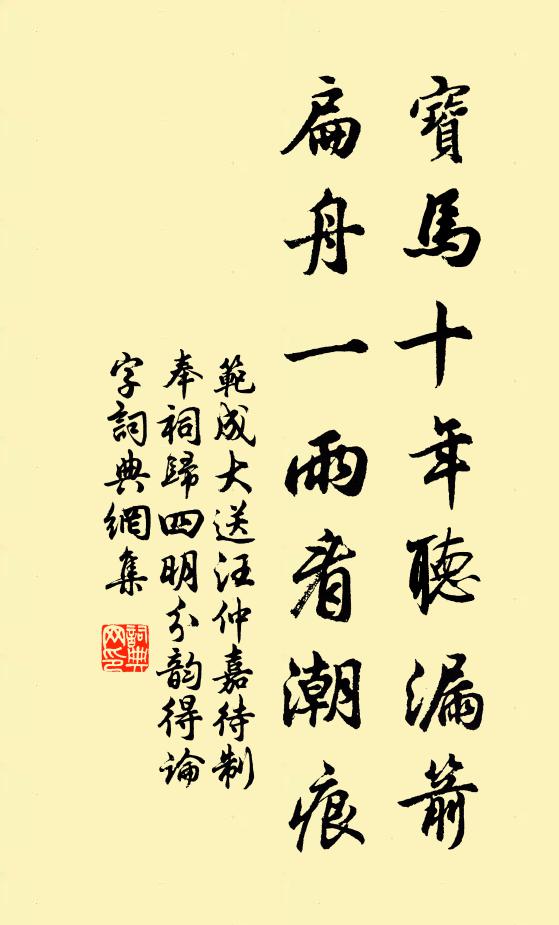 寶馬十年聽漏箭
扁舟一雨看潮痕
範成大送汪仲嘉待制
奉祠歸四明分韵得論
字詞典網集
詞典網印